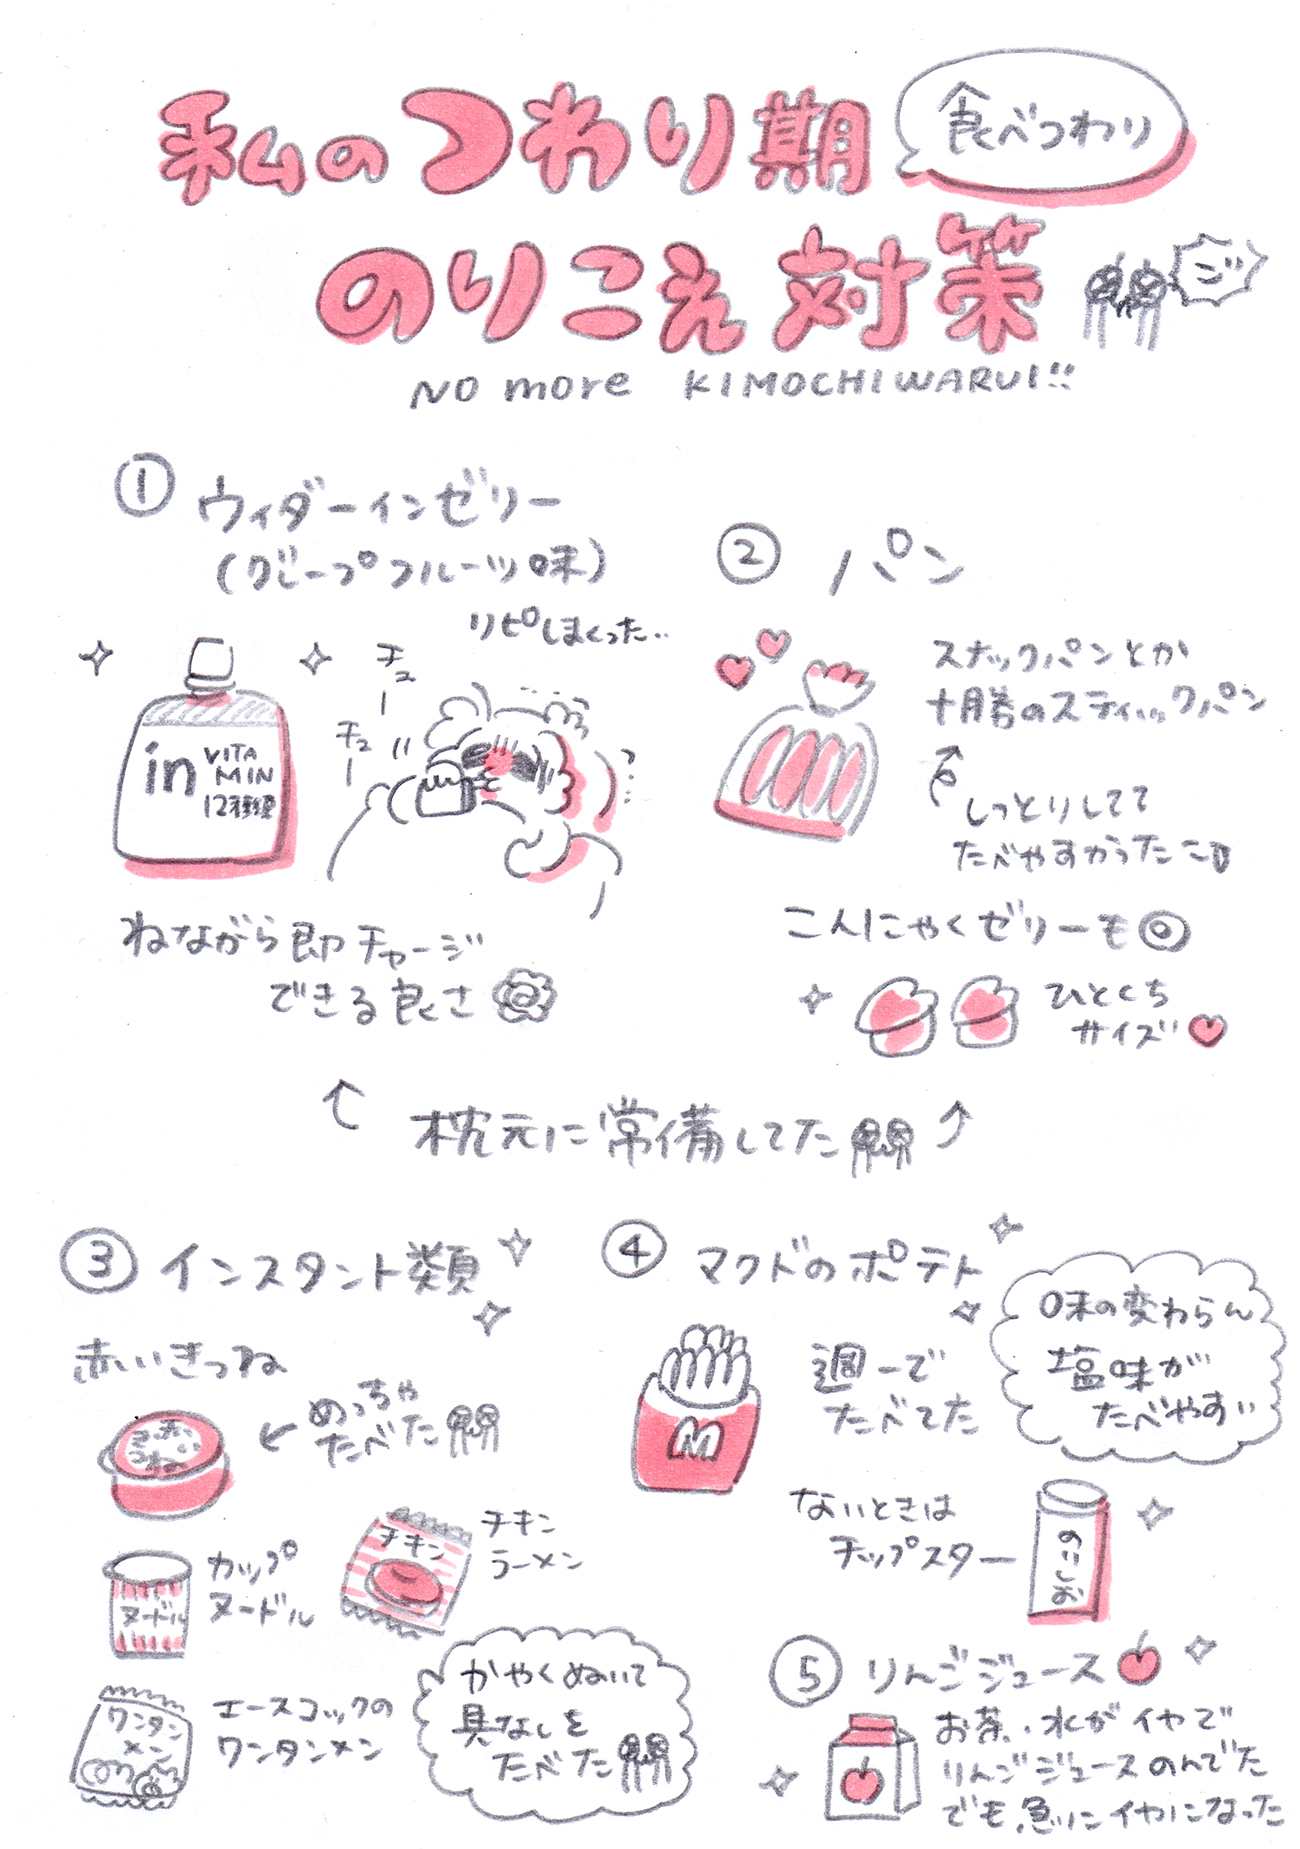 私のつわり期
食べつわり
のりこえ対策
NO more KIMOCHIWARUI!!
① ウィダーインゼリー
(グレープフルーツ味)
リピしまくった..
チュー
チュー
in VITAMIN 12種類
ねながら即チャージ
できる良さ
② パン
スナックパンとか
十勝のスティックパン
しっとりしてて
たべやすかった
こんにゃくゼリーも◎
ひとくち
サイズ
枕元に常備してた
③ インスタント類
赤いきつね
めっちゃ
たべた
赤いきつね
カップ
ヌードル
ヌードル
チキン
チキン
ラーメン
ワンタン
メン
エースコックの
ワンタンメン
かやくぬいて
具なしを
たべた
④ マクドのポテト
M
週一で
たべてた
味の変わらん
塩味が
たべやすい
ないときは
チップスター
のりしお
⑤ りんごジュース
お茶、水がイヤで
りんごジュースのんでた
でも、急にイヤになった